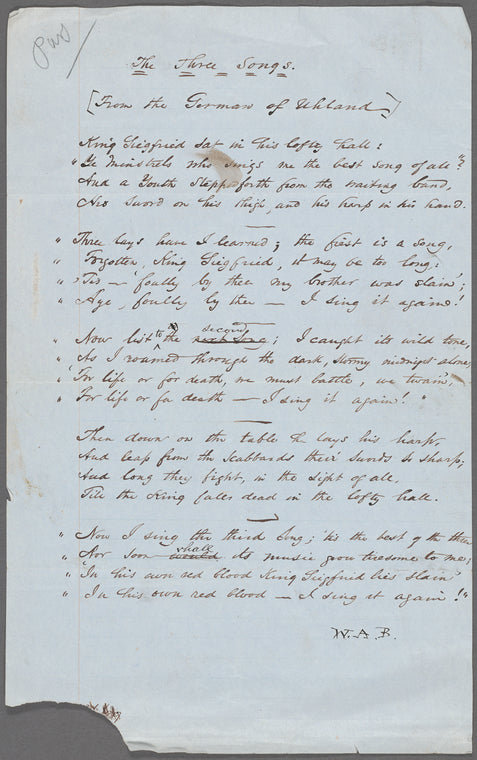 The Three Songs.
[From the German of Uhland]
King Siegfried sat in his lofty hall:
"Ye Minstrels who sings me the best song of all"?
And a Youth stepped forth from the waiting band,
His sword on his thigh, and his harp in his hand.
" Three lays have I learned; the first is a song,
" Forgotten, King Siegfried, it may be too long:
" 'Tis — 'foully by thee my brother was slain';
" Aye, foully by thee — I sing it again!'
" Now list to the second; I caught its wild tone,
" As I roamed through the dark, stormy midnight alone,
" 'For life or for death, we must battle, we twain,'
" For life or for death — I sing it again! "
Then down on the table he lays his harp,
And leap from the scabbards their swords so sharp;
And long they fight, in the sight of all,
Till the King falls dead in the lofty hall.
" Now I sing the third song; 'tis the best of the three
" Nor soon shall its music grow tiresome to me;
" 'In his own red blood King Siegfried lies slain'
" In his own red blood — I sing it again!"
W.A.B.